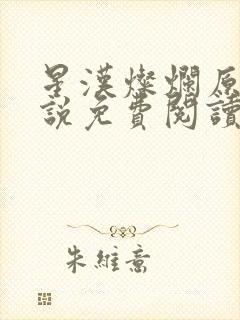 星漢燦爛原
說免費閱讀
朱維意